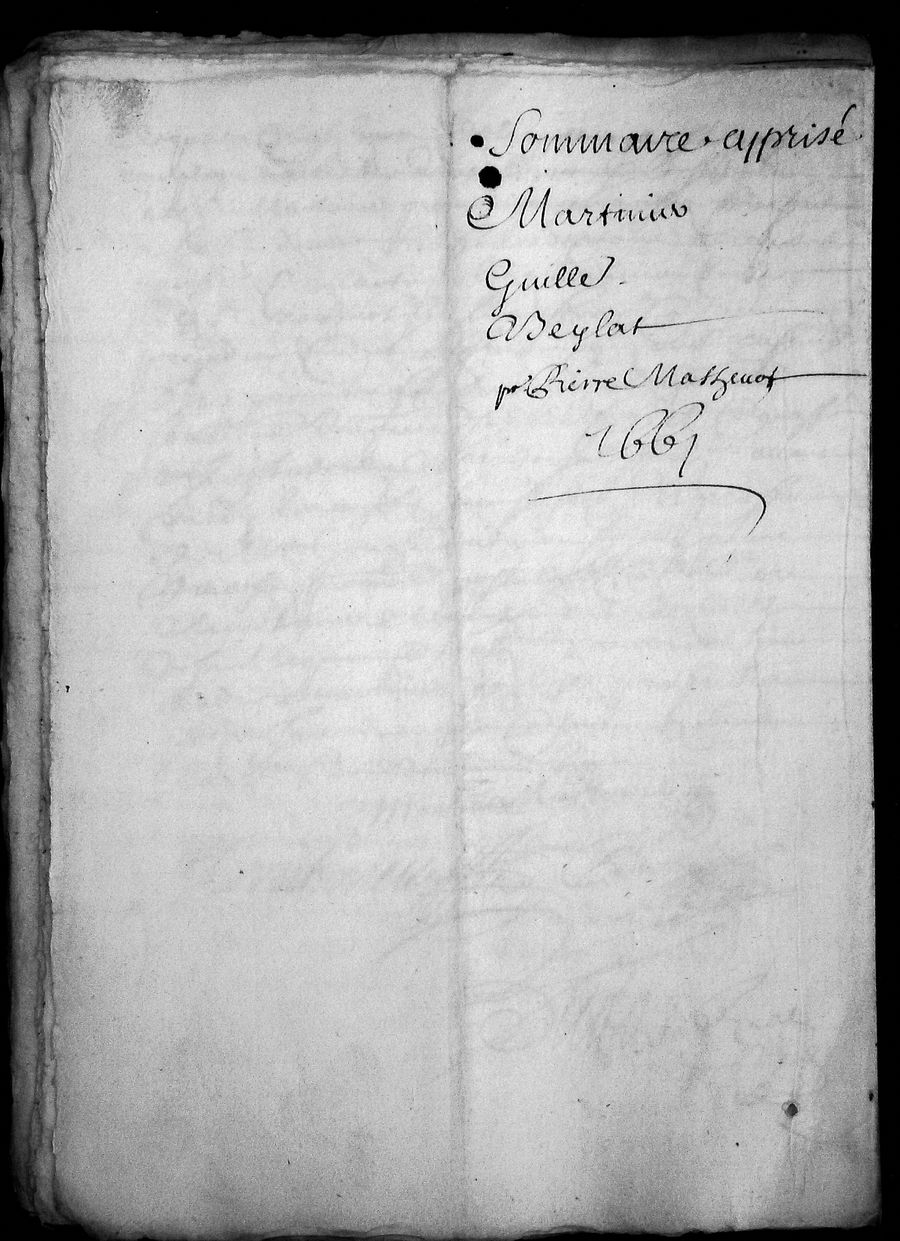 Sommaire apprisé
Martinus
Guille
Beylat
pr Pierre Mathenot
1661